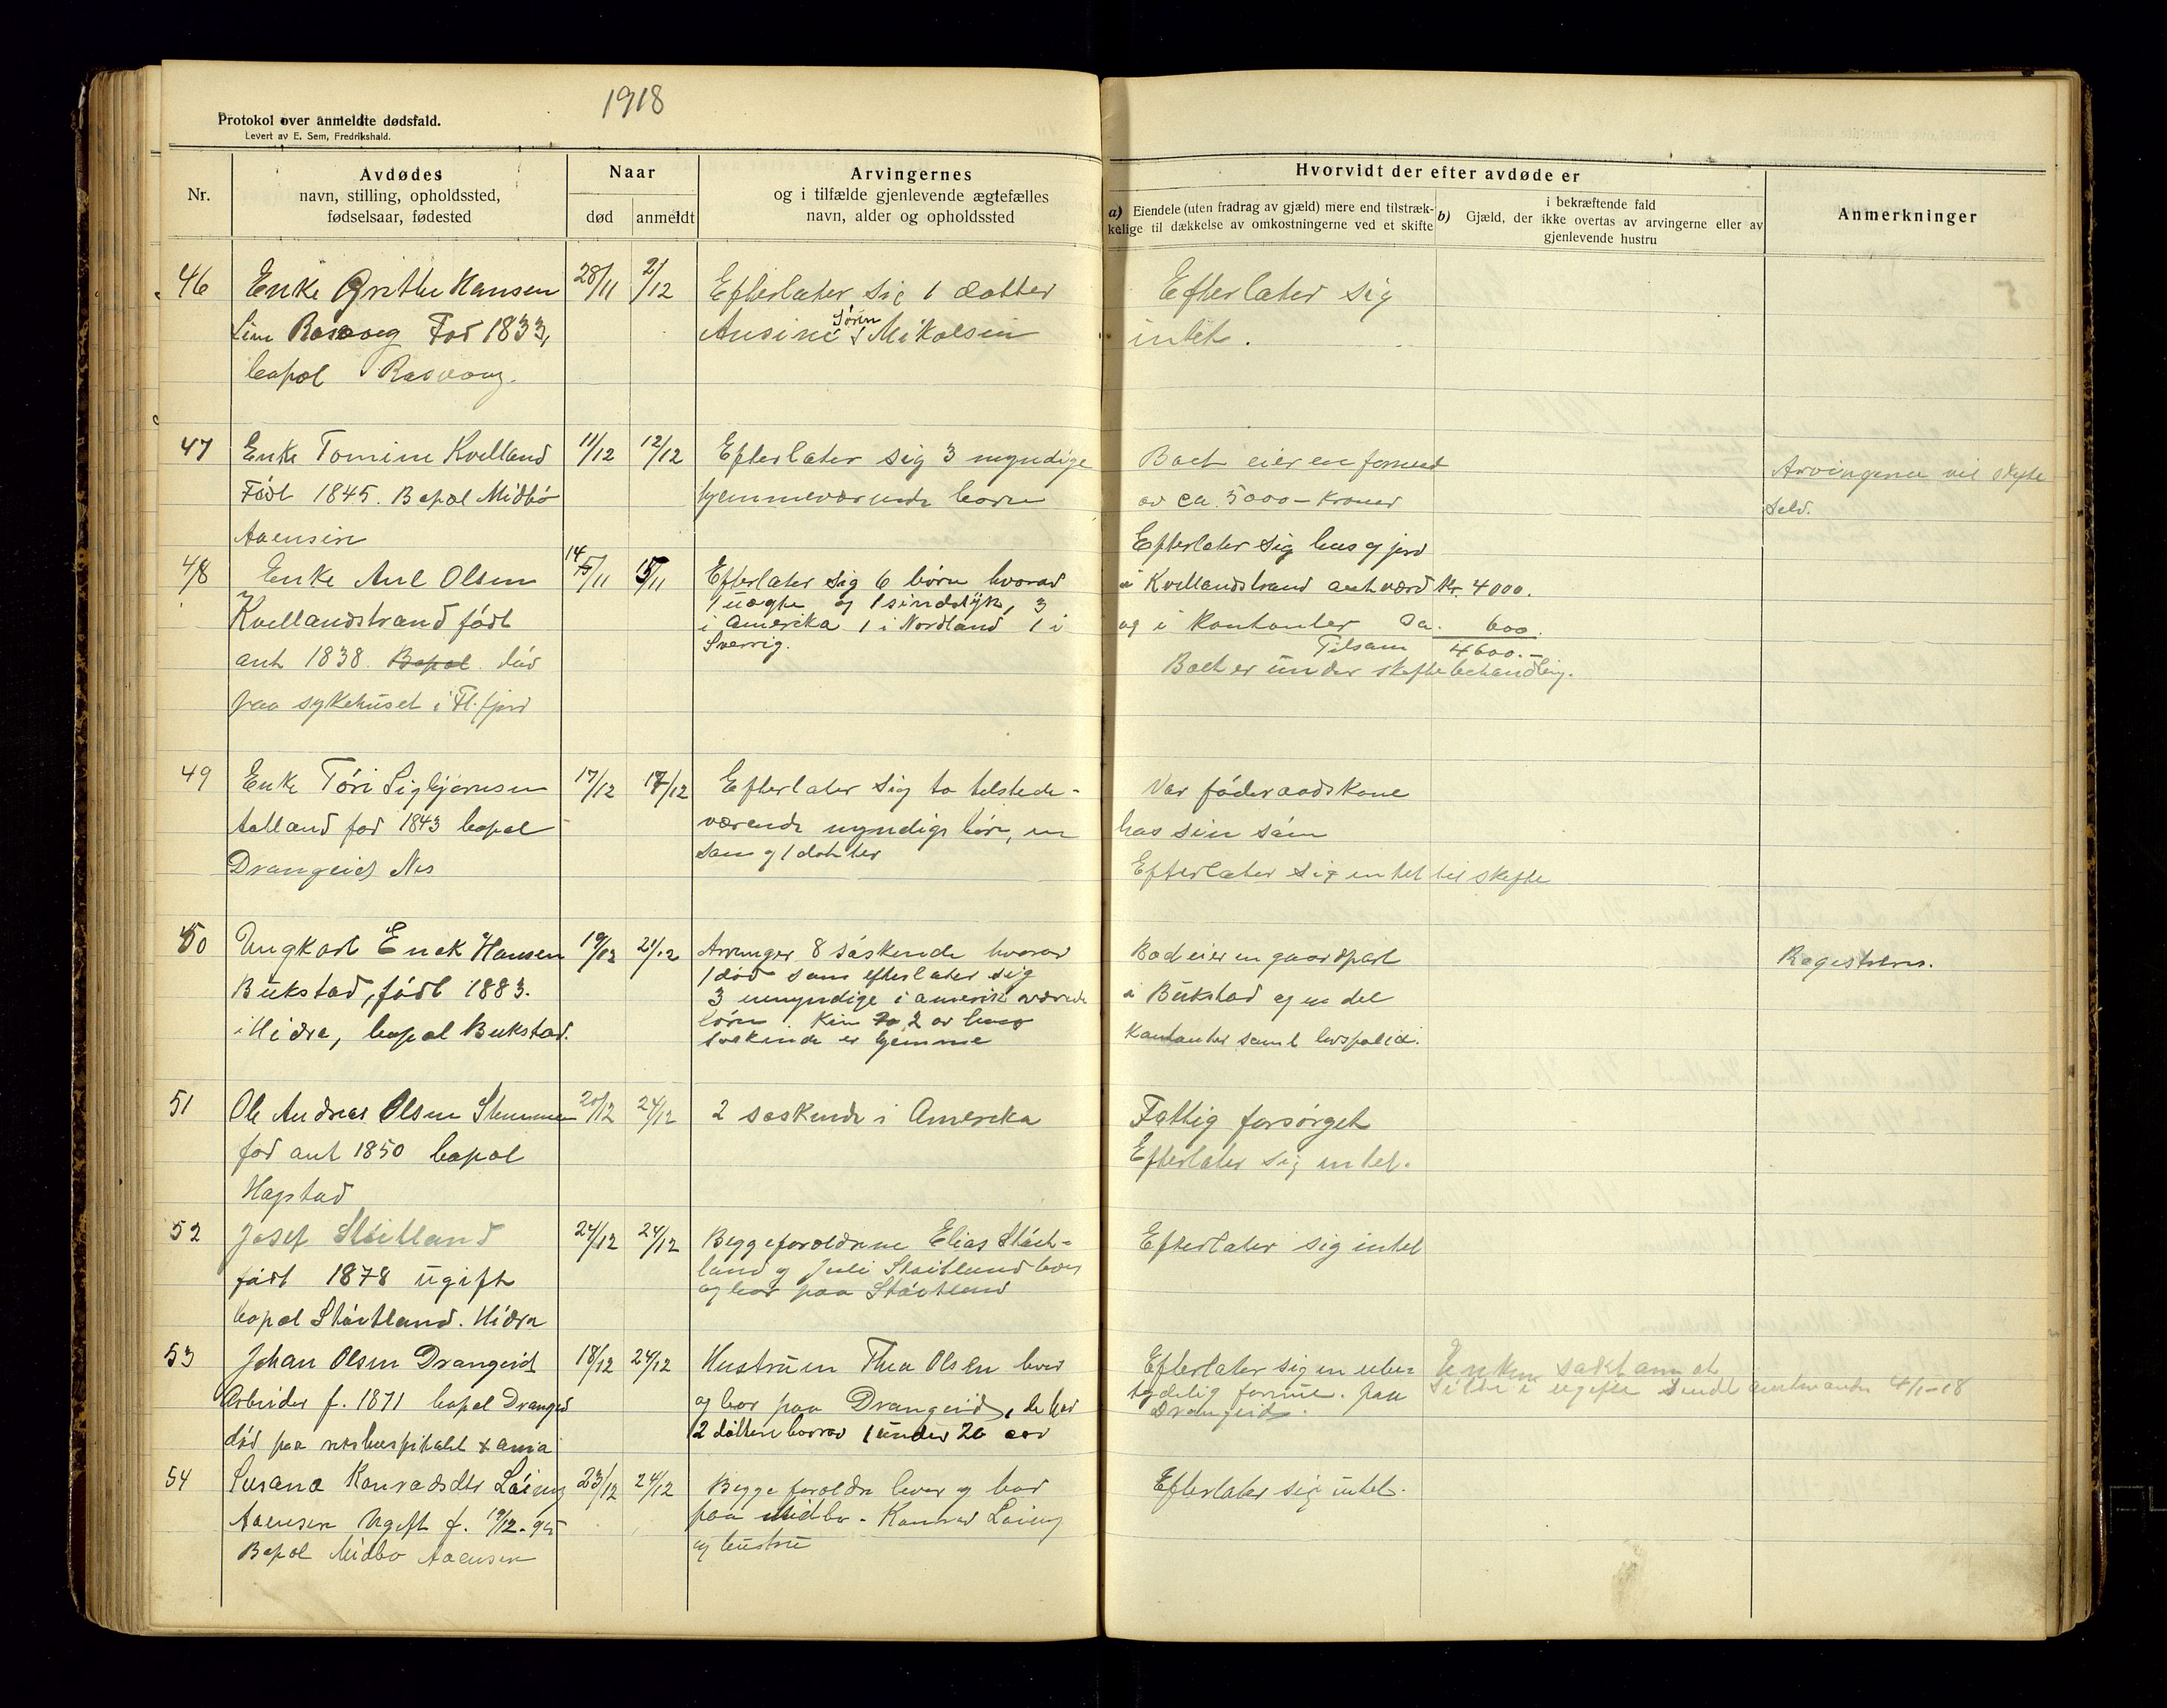 1918
Protokol over anmeldte dødsfald.
Levert av E. Sem, Fredrikshald.
Nr.
Avdødes
navn, stilling, opholdssted,
fødselsaar, fødested
Naar
død
anmeldt
Arvingernes
og i tilfælde gjenlevende ægtefælles
navn, alder og opholdssted
Hvorvidt der efter avdøde er
a) Eiendele (uten fradrag av gjæld) mere end tilstræk-
kelige til dækkelse av omkostningerne ved et skifte
b) i bekræftende fald
Gjæld, der ikke overtas av arvingerne eller av
gjenlevende hustru
Anmerkninger
46
Enke Grithe Hansen
Rasvaag Fød 1833,
bopæl Rasvaag.
28/11
2/12
Efterlater sig 1 datter
Ansine Søren Mikalsen
Efterlater sig
intet.
47
Enke Tomine Kvelland
Født 1845. Bopæl Midbø
Aaensire
11/12
12/12
Efterlater sig 3 myndige
hjemmeværende børn
Boet eier en formue
av ca. 5000 - kroner
Arvingerne vil skifte
selv.
48
Enke Ane Olsen
Kvellandstrand født
ant 1838. Bopæl. død
paa sykehuset i Fl.fjord
14/11
15/11
Efterlater sig 6 børn hvorav
1 uægte og 1 sindsyk, 3
i Amerika 1 i Nordland 1 i
Sverrig.
Efterlater sig hus og jord
i Kvellandstrand ant værd kr. 4000.
og i kontanter Da. 600.
Tilsam 4600.-
Boet er under skiftebehandling.
49
Enke Tóri Sigbjørnsen
Aalland fød 1843 bopæl
Drangeid Nes
17/12
17/12
Efterlater sig to tilstede-
værende myndige børn, en
søn og 1 datter
Var føderaadskone
hos sin søn
Efterlater sig intet til skifte
50
Ungkarl Enok Hansen
Bukstad, født 1883.
i Hidra, bopæl Bukstad.
19/12
21/12
Arvinger 8 søskende hvorav
1 død som efterlater sig
3 umyndige i amerika værende
børn. Kun 2 av hans
søskende er hjemme
Bod eier en gaardpart
i Bukstad og en del
kontanter samt livspolice.
Registreres.
51
Ole Andreas Olsen Stemmen
fød ant 1850 bopæl
Hapstad
20/12
24/12
2 søskende i Amerika
Fattig forsørget
Efterlater sig intet.
52
Josef Støitland
født 1878 ugift
bopæl Støitland. Hidra
24/12
24/12
Begge foreldrene Elias Støit-
land og Juli Støitland lever
og bor paa Støitland
Efterlater sig intet
53
Johan Olsen Drangeid
Arbeider f. 1871 bopæl Drangeid
død paa rikshospitalet Xania
18/12
24/12
Hustruen Thea Olsen lever
og bor paa Drangeid, de har
2 døttre hvorav 1 under 20 aar
Efterlater sig en ube-
tydelig formue. paa
Drangeid.
Enken søkt om at
sitte i uskifte sendt amtmanden 4/1-18
54
Susana Konradsdtr Løining
Aaensire Ugift f. 19/12-95
Bopæl Midbø Aaensire
23/12
24/12
Begge foreldre lever og bor
paa Midbø - Konrad Løining
og hustru
Efterlater sig intet.